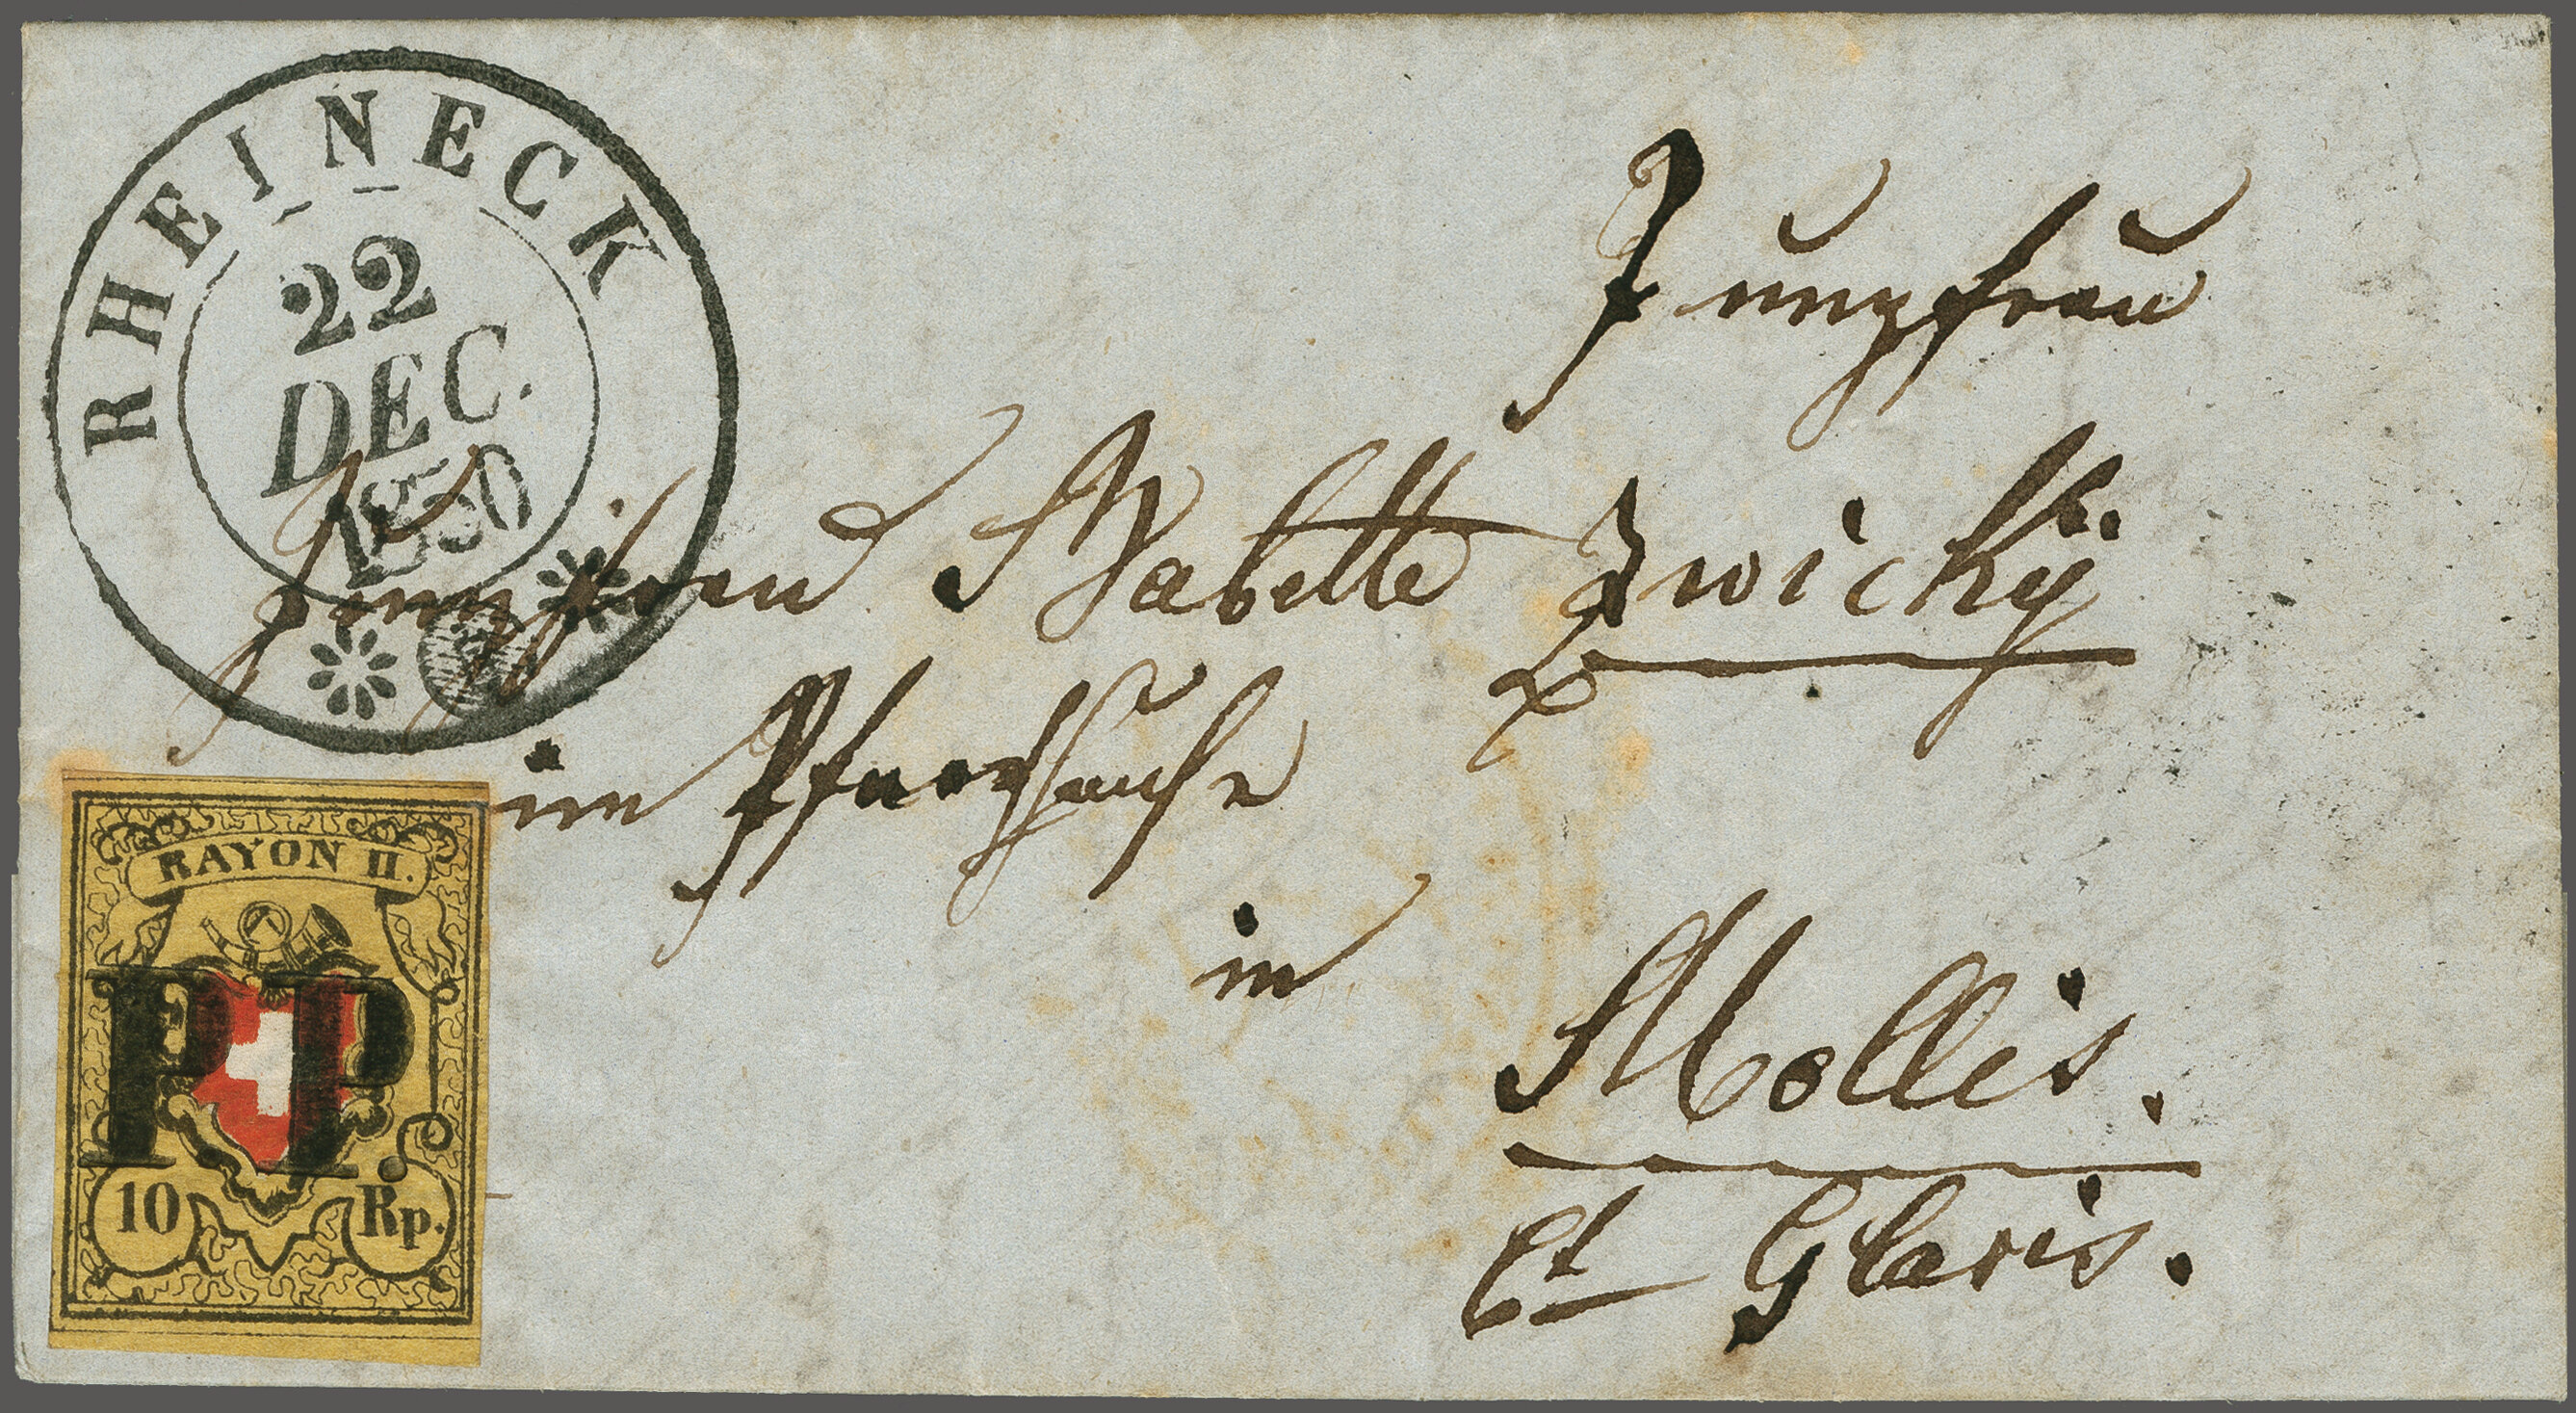 RHEINECK
22
DEC.
1850
Jungfrau
Jungfrau Babette Zwickÿ
im Pfarrhause
in
Mollis.
Ct Glaris.
RAYON II.
PP.
10 Rp.